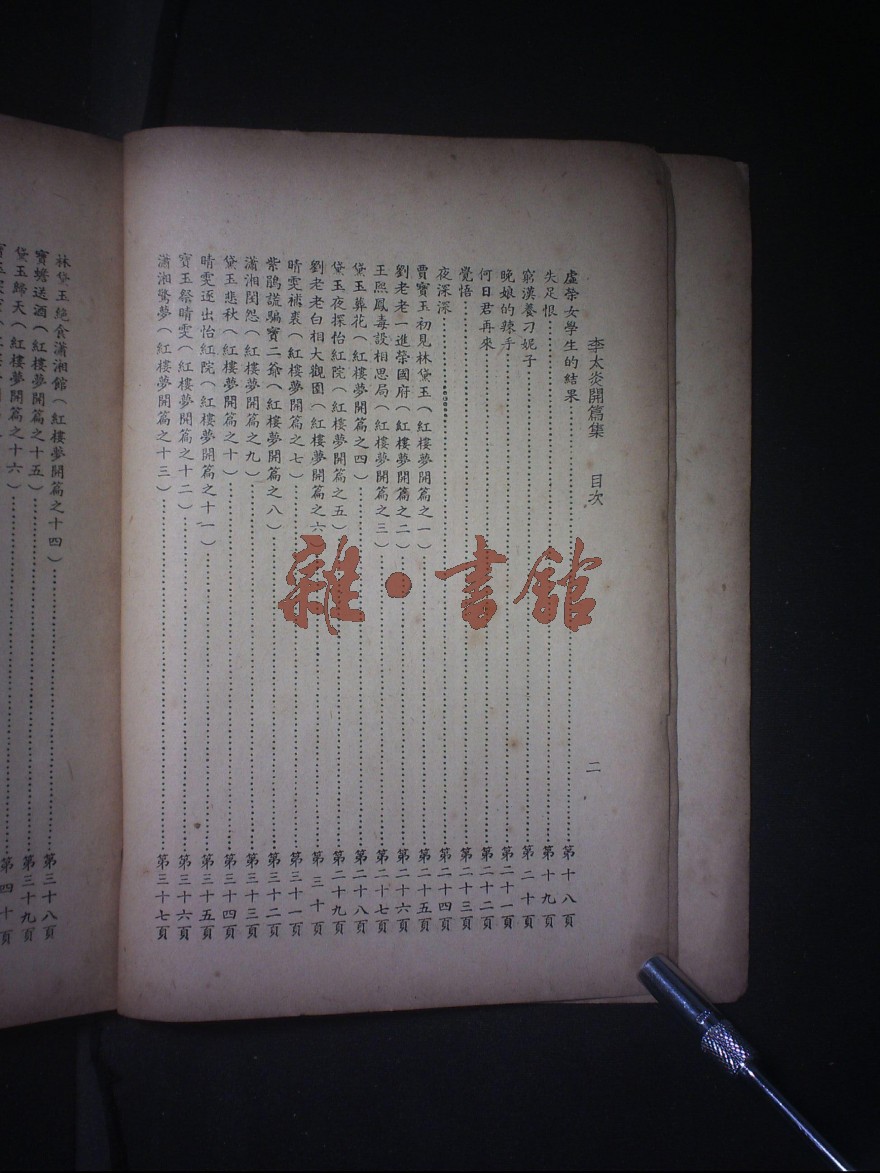 李太炎開篇集　目次
二
虛榮女學生的結果…………第十八頁
失足恨…………第十九頁
窮漢養刁妮子…………第二十頁
晚娘的辣手…………第二十一頁
何日君再來…………第二十二頁
覺悟…………第二十三頁
夜深深…………第二十四頁
賈寶玉初見林黛玉（紅樓夢開篇之一）…………第二十五頁
劉老老一進榮國府（紅樓夢開篇之二）…………第二十六頁
王熙鳳毒設相思局（紅樓夢開篇之三）…………第二十七頁
黛玉葬花（紅樓夢開篇之四）…………第二十八頁
黛玉夜探怡紅院（紅樓夢開篇之五）…………第二十九頁
劉老老白相大觀園（紅樓夢開篇之六）…………第三十頁
晴雯補裘（紅樓夢開篇之七）…………第三十一頁
紫鵑謊騙寶二爺（紅樓夢開篇之八）…………第三十二頁
瀟湘閨怨（紅樓夢開篇之九）…………第三十三頁
黛玉悲秋（紅樓夢開篇之十）…………第三十四頁
晴雯逐出怡紅院（紅樓夢開篇之十一）…………第三十五頁
寶玉祭晴雯（紅樓夢開篇之十二）…………第三十六頁
瀟湘驚夢（紅樓夢開篇之十三）…………第三十七頁
林黛玉絕食瀟湘館（紅樓夢開篇之十四）…………第三十八頁
寶蟾送酒（紅樓夢開篇之十五）…………第三十九頁
黛玉歸天（紅樓夢開篇之十六）…………第四十頁
雜·書館